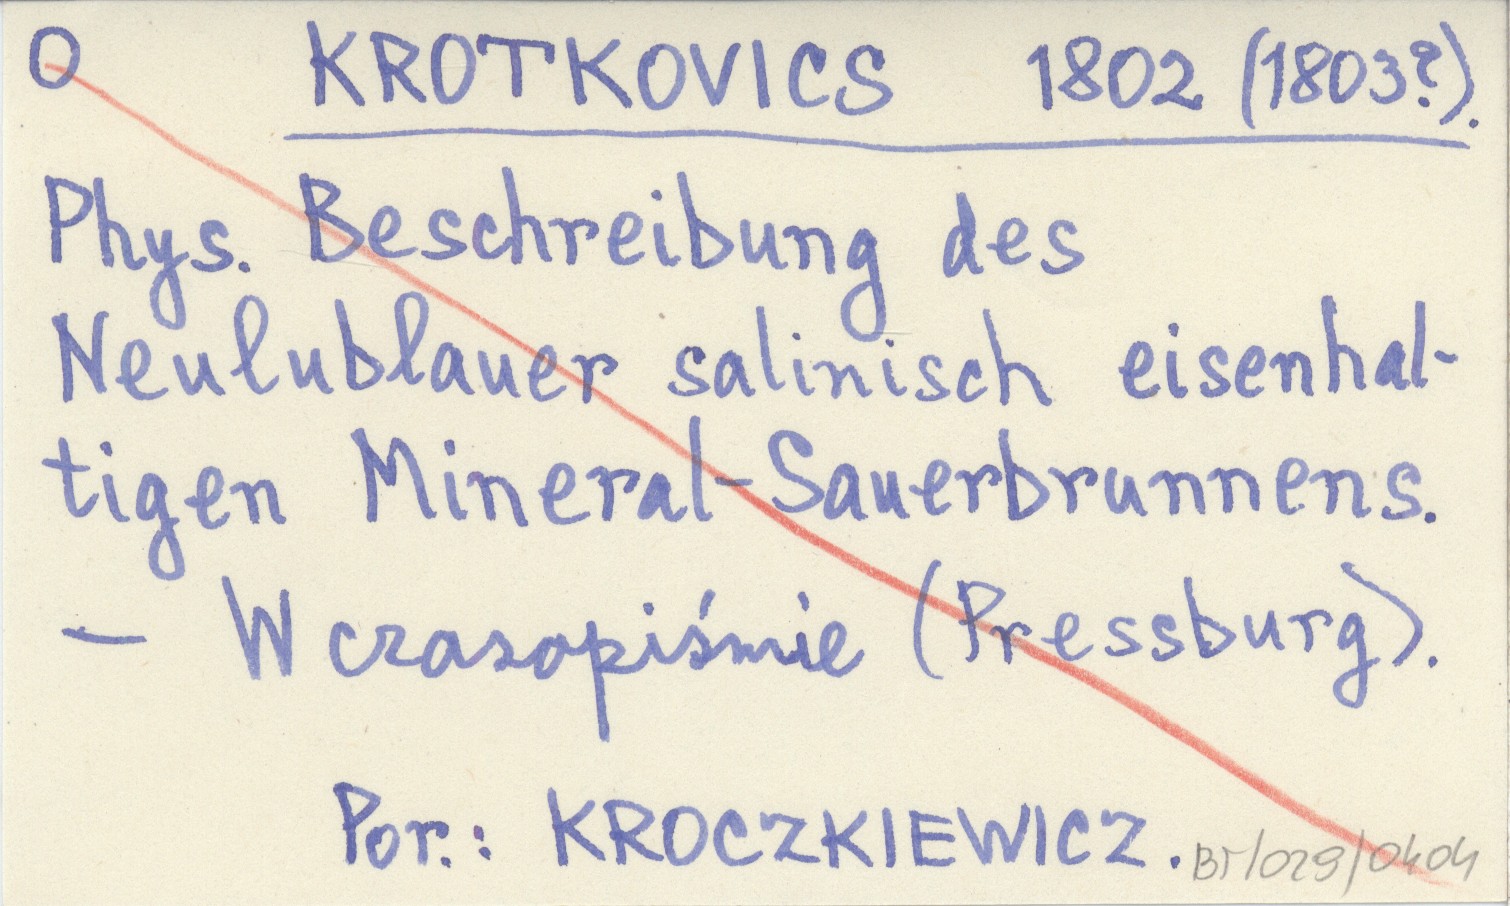 O KROTKOVICS 1802 (1803?).
Phys. Beschreibung des
Neulublauer salinisch eisenhal-
tigen Mineral-Sauerbrunnens.
- W czasopiśmie (Pressburg).
Por.: KROCZKIEWICZ.
BT/029/0404